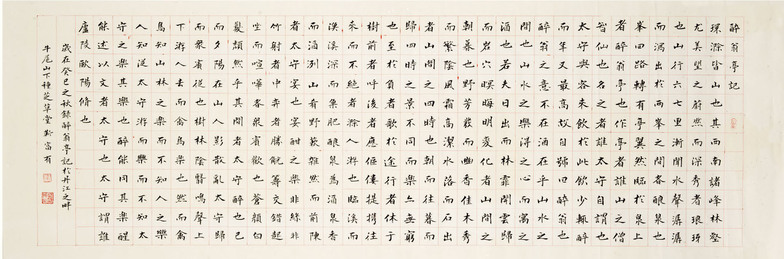 醉翁亭記
環滁皆山也其西南諸峰林壑
尤美望之蔚然而深秀者琅琊
也山行六七里漸聞水聲潺潺
而瀉出於兩峯之間者釀泉也
峯回路轉有亭翼然臨於泉上
者醉翁亭也作亭者誰山之僧
智仙也名之者誰太守自謂也
太守與客來飲於此飲少輒醉
而年又最高故自號曰醉翁也
醉翁之意不在酒在乎山水之
間也山水之樂得之心而寓之
酒也若夫日出而林霏開雲歸
而岩穴暝晦明變化者山間之
朝暮也野芳發而幽香佳木秀
而繁陰風霜高潔水落而石出
者山間之四時也朝而往暮而
歸四時之景不同而樂亦無窮
也至於負者歌於途行者休于
樹前者呼後者應傴僂提攜往
來而不絕者滁人游也臨溪而
漁溪深而魚肥釀泉為酒泉香
而酒冽山肴野蔌雜然而前陳
者太守宴也宴酣之樂非絲非
竹射者中弈者勝觥籌交錯起
坐而喧嘩者衆賓歡也蒼顏白
髮頹然乎其間者太守醉也已
而夕陽在山人影散亂太守歸
而衆賓從也樹林陰翳鳴聲上
下游人去而禽鳥樂也然而禽
鳥知山林之樂而不知人之樂
人知從太守游而樂而不知太
守之樂其樂也醉能同其樂醒
能述以文者太守也太守謂誰
廬陵歐陽脩也
歲在癸巳之秋錄醉翁亭記於丹江之畔
牛尾山下種芝草堂 富有